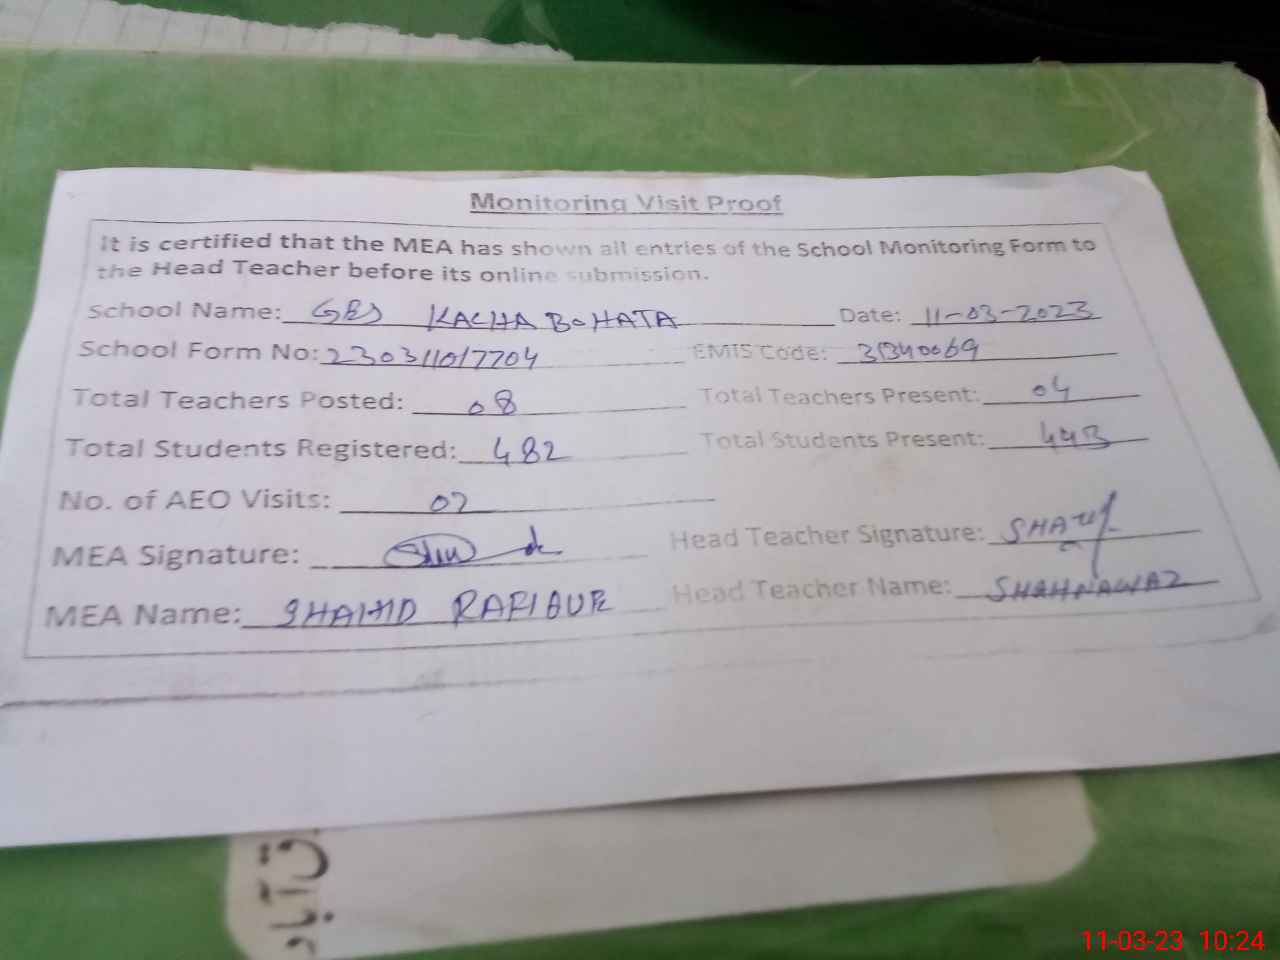 Monitoring Visit Proof
It is certified that the MEA has shown all entries of the School Monitoring Form to
the Head Teacher before its online submission.
School Name: GES KACHA BOHATA Date: 11-03-2023
School Form No: 230311017704 EMIS Code: 31340069
Total Teachers Posted: 08 Total Teachers Present: 04
Total Students Registered: 482 Total Students Present: 443
No. of AEO Visits: 02
MEA Signature: Head Teacher Signature:
MEA Name: SHAHID Head Teacher Name: SHAHNAWAZ
11-03-23 10:24